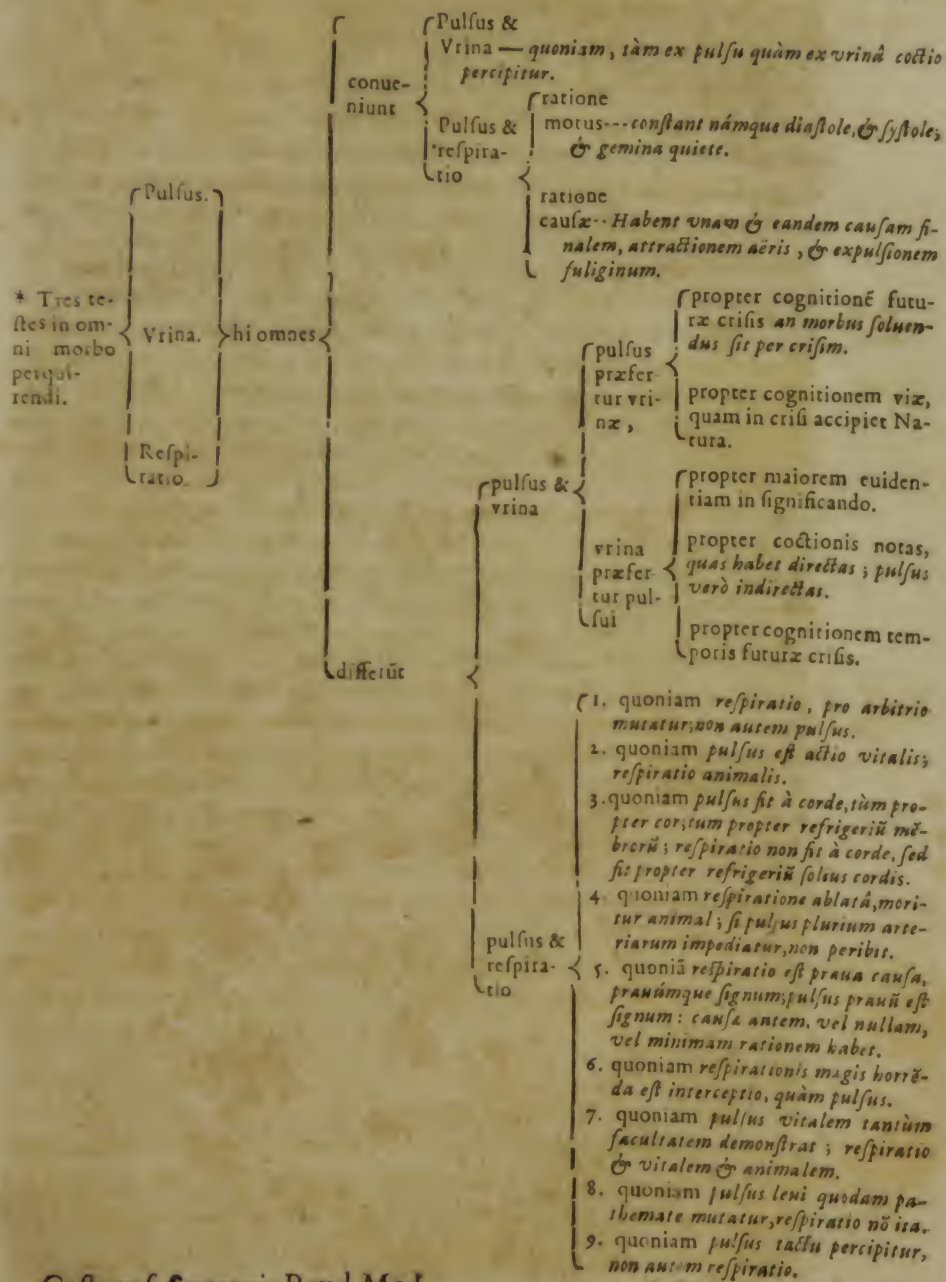 * Tres te-
ſtes in om-
ni morbo
perqui-
rendi.
Pulſus.
Vrina.
Reſpi-
ratio.
hi omnes
conue-
niunt
Pulſus &
Vrina — quoniam, tàm ex pulſu quàm ex vrinâ coctio
percipitur.
Pulſus &
reſpira-
tio
ratione
motus--- conſtant námque diaſtole, & ſyſtole;
& gemina quiete.
ratione
cauſæ-- Habent vnam & eandem cauſam fi-
nalem, attractionem aëris, & expulſionem
fuliginum.
differũt
pulſus &
vrina
pulſus
præfer-
tur vri-
næ,
propter cognitionẽ futu-
ræ criſis an morbus ſoluen-
dus ſit per criſim.
propter cognitionem viæ,
quam in criſi accipiet Na-
tura.
vrina
præfer-
tur pul-
ſui
propter maiorem euiden-
tiam in ſignificando.
propter coctionis notas,
quas habet directas; pulſus
verò indirectas.
propter cognitionem tem-
poris futuræ criſis.
pulſus &
reſpira-
tio
1. quoniam reſpiratio, pro arbitrio
mutatur; non autem pulſus.
2. quoniam pulſus eſt actio vitalis;
reſpiratio animalis.
3. quoniam pulſus fit à corde, tùm pro-
pter cor, tum propter refrigeriũ mẽ-
brorũ; reſpiratio non fit à corde, ſed
fit propter refrigeriũ ſolius cordis.
4. quoniam reſpiratione ablatâ, mori-
tur animal; ſi pulſus plurium arte-
riarum impediatur, non peribit.
5. quoniã reſpiratio eſt praua cauſa,
prauúmque ſignum; pulſus prauũ eſt
ſignum: cauſæ autem, vel nullam,
vel minimam rationem habet.
6. quoniam reſpirationis magis horrẽ-
da eſt interceptio, quàm pulſus.
7. quoniam pulſus vitalem tantùm
facultatem demonſtrat; reſpiratio
& vitalem & animalem.
8. quoniam pulſus leui quodam pa-
themate mutatur, reſpiratio nõ ita.
9. quoniam pulſus tactu percipitur,
non autem reſpiratio.